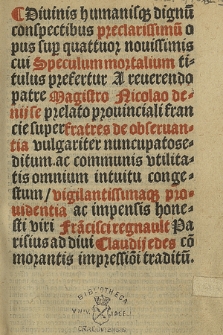 ¶ Diuinis humanisq̃ dignũ
conspectibus preclarissimũ o
pus sup̱ quattuor nouissimis
cui Speculum mortalium ti
tulus prefertur A reuerendo
patre Magistro Nicolao de
nijsse prelato prouinciali fran
cie super fratres de obseruan-
tia vulgariter nuncupatos e-
ditum. ac communis vtilita
tis omnium intuitu conge-
stum / vigilantissimaq̃ pro
uidentia ac impensis hone-
sti viri Frãcisci regnault Pa
risius ad diui Claudij edes cõ
morantis impressiõi traditũ.
BIBLIOTHECA